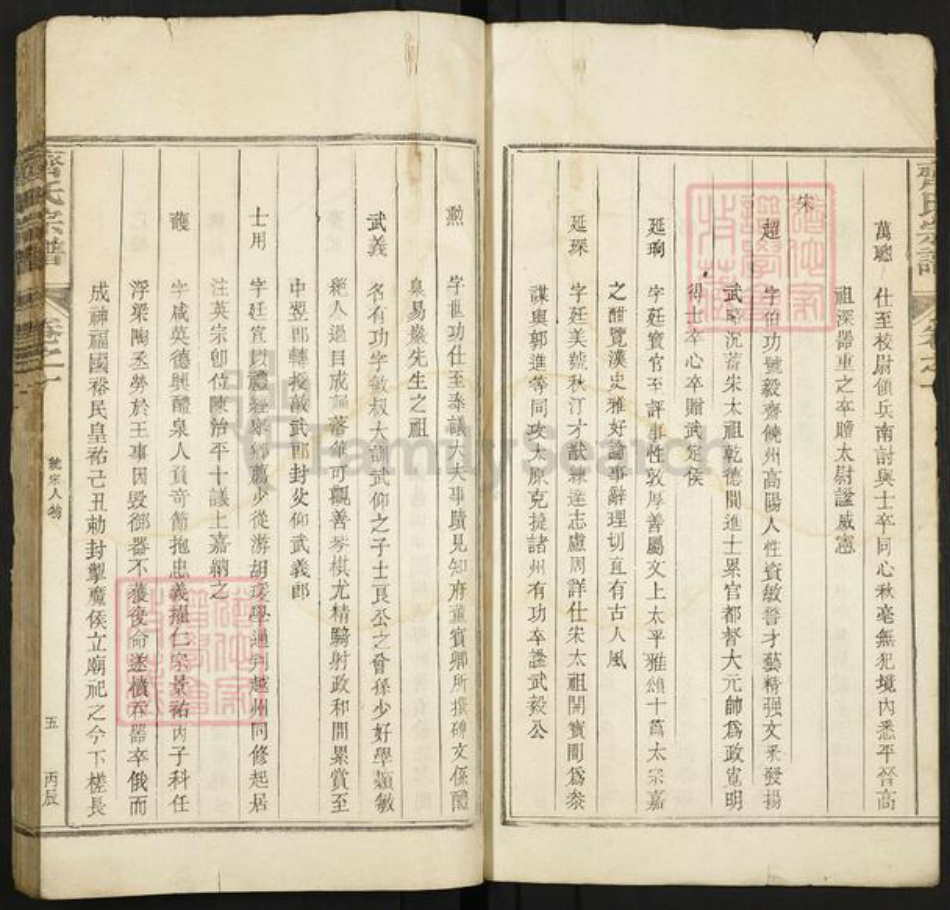 萬聰　仕至校尉領兵南討與士卒同心秋毫無犯境內悉平晉高
祖深器重之卒贈太尉謚威憲
宋
超　字伯功號毅齋饒州高陽人性資敏警才藝精強文釆發揚
武畧沉蓄朱太祖乾德間進士累官都督大元帥爲政寬明
得士卒心卒贈武定侯
延珣　字廷寶官至評事性敦厚善屬文上太平雅頌十篇太宗嘉
之酣覽漢史雅好論事辭理切直有古人風
延琛　字廷美號秋汀才猷練達志慮周詳仕宋太祖開寶間爲叅
謀與郭進等同攻太原克捷諸州有功卒謚武毅公
勲　字世功仕至奉議大夫事蹟見知府董賓卿所撰碑文係醴
泉易巖先生之祖
武義　名有功字敏叔大訓武仰之子士良公之曾孫少好學穎敏
絶人過目成誦落筆可觀善琴棋尤精騎射政和間累賞至
中翌郎轉授敦武郎封父仰武義郎
士用　字廷宜以禮經舉鄉薦少從游胡瑗學通判越州同修起居
注英宗卽位陳治平十議上嘉納之
䕶　字咸英德興醴泉人負奇節抱忠義擢仁宗景祐丙子科任
浮梁陶丞勞於王事因毀御器不獲復命遂憤吞器卒俄而
成神福國裕民皇祐己丑勅封掣魔侯立廟祀之今下槎長
齊氏宗譜
卷之一
統宗人物
五
丙辰